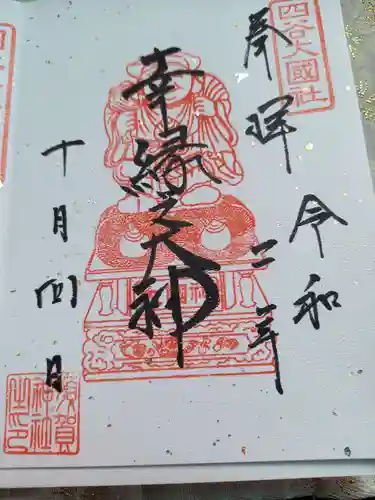 四谷大國社
奉拝
令和二年
幸縁之大神
十月四日
須賀神社之印